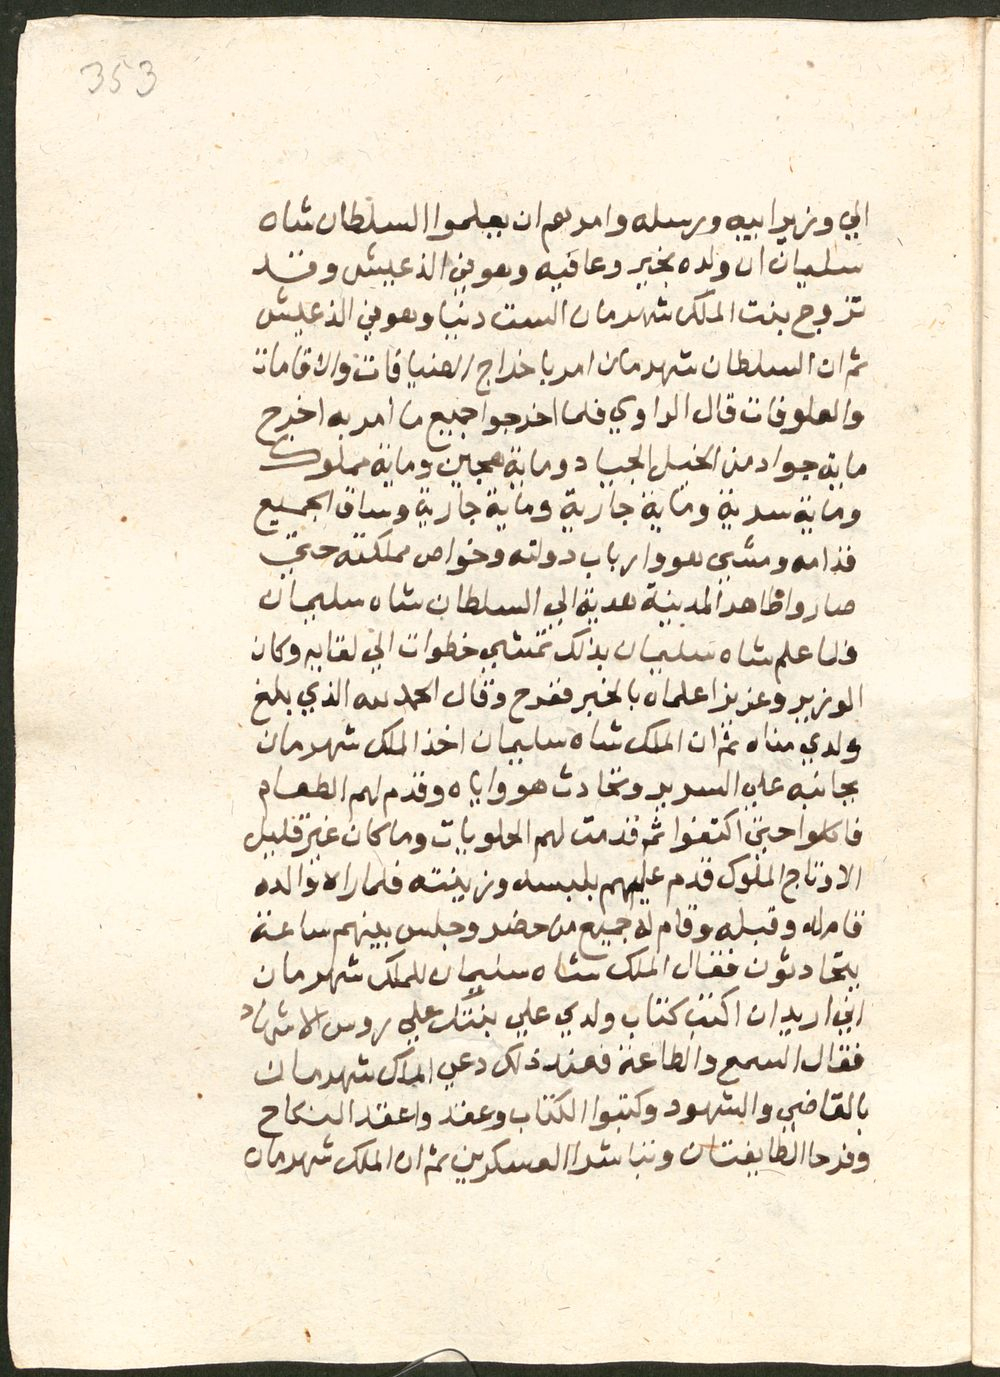 353
الي وزير ابيه ورسله وامرهم ان يعلموا السلطان شاه
سليمان ان ولده بخير وعافيه وهو في الذ عيش وقد
تزوج بنت الملك شهرمان الست دنيا وهو في الذ عيش
ثم ان السلطان شهرمان امر باخراج الضيافات والاقامات
والعلوفات قال الراوي فلما اخرجوا جميع ما امر به اخرج
ماية جواد من الخيل الجياد وماية هجين وماية مملوك
وماية سرية وماية جارية وماية جارية وساق الجميع
قدامه ومشي هو وارباب دولته وخواص مملكته حتي
صاروا ظاهر المدينة هدية الي السلطان شاه سليمان
ولما علم شاه سليمان بذلك تمشي خطوات الي لقايه وكان
الوزير وعزيز اعلماه بالخبر ففرح وقال الحمد لله الذي بلغ
ولدي مناه ثم ان الملك شاه سليمان اخذ الملك شهرمان
بجانبه علي السرير وتحادث هو واياه وقدم لهم الطعام
فاكلوا حتي اكتفوا ثم قدمت لهم الحلويات وما كان غير قليل
الا وتاج الملوك قدم عليهم بلبسه وزينته فلما راه والده
قام له وقبله وقام له جميع من حضر وجلس بينهم ساعة
يتحادثون فقال الملك شاه سليمان للملك شهرمان
اني اريد ان اكتب كتاب ولدي علي بنتك علي روس الاشهاد
فقال السمع والطاعة فعند ذلك دعي الملك شهرمان
بالقاضي والشهود وكتبوا الكتاب وعقد واعقد النكاح
وفرحا الطايفتان وتباشرا العسكرين ثم ان الملك شهرمان